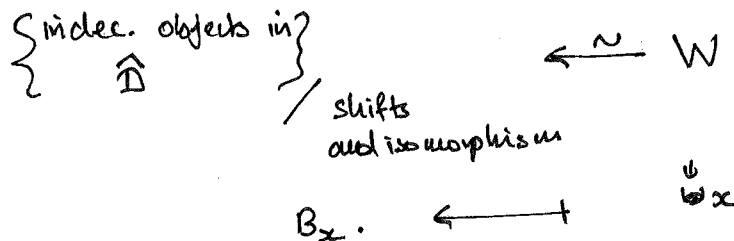 {indec. objects in
D̂} / shifts and isomorphism ⟵∼ W
B_x . ⟻ x